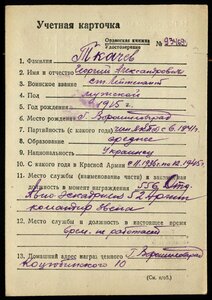 Учетная карточка
Орденская книжка
Удостоверение
№
1. Фамилия Ткачов
2. Имя и отчество Георгий Александрович
3. Воинское звание ст. лейтенант
4. Пол мужской
5. Год рождения 1915 г.
6. Место рождения г. Ворошиловград
7. Партийность (с какого года) с 1941 г.
8. Образование среднее
9. Национальность Украинец
10. С какого года в Красной Армии с 1936 по 12.1945 г.
11. Место службы (наименование части) и занимаемая
должность в момент награждения 556 отд.
Авиа Эскадрилья 52 Армии
командир звена
12. Место службы и должность в настоящее время
врем. не работает
13. Домашний адрес награжденного г. Ворошиловград
Коцюбинского 10
(См. н/об.)